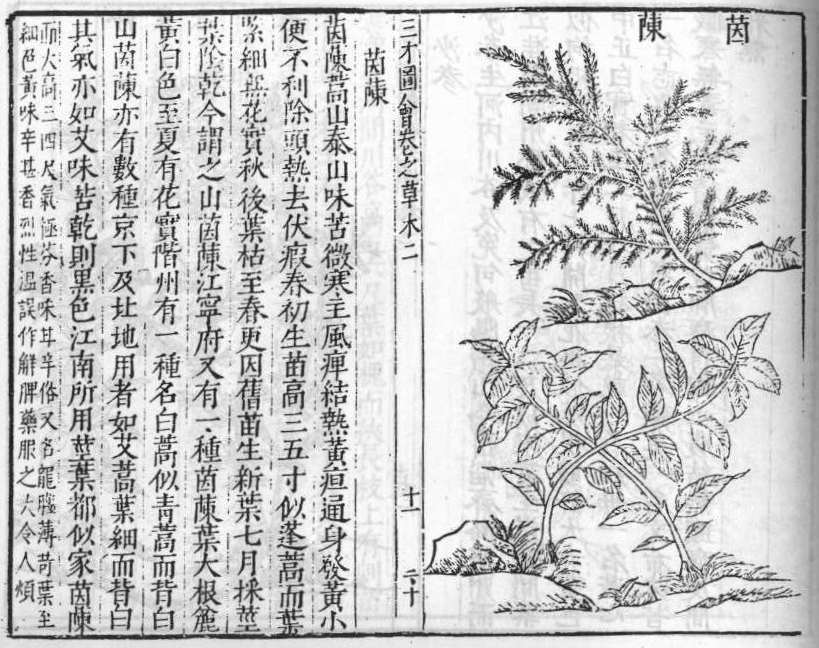 茵蔯
三才圖會卷之草木二 十一 二十
茵蔯
茵蔯蒿山泰山味苦微寒主風痺結熱黃疸通身發黃小
便不利除頭熱去伏瘕春初生苗高三五寸似蓬蒿而葉
緊細無花實秋後葉枯至春更因舊苗生新葉七月採莖
葉陰乾今謂之山茵蔯江寧府又有一種茵蔯葉大根麄
黃白色至夏有花實階州有一種名白蒿似青蒿而背白
山茵蔯亦有數種京下及北地用者如艾蒿葉細而背白
其氣亦如艾味苦乾則黑色江南所用莖葉都似家茵蔯
而大高三四尺氣極芬香味甘辛俗又名龍腦薄荷葉至
細色黃味辛甚香烈性溫誤作解脾藥服之大令人煩